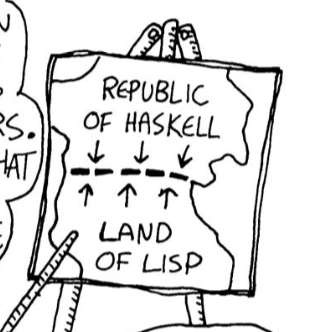 RS.
HAT
REPUBLIC
OF HASKELL
LAND
OF LISP